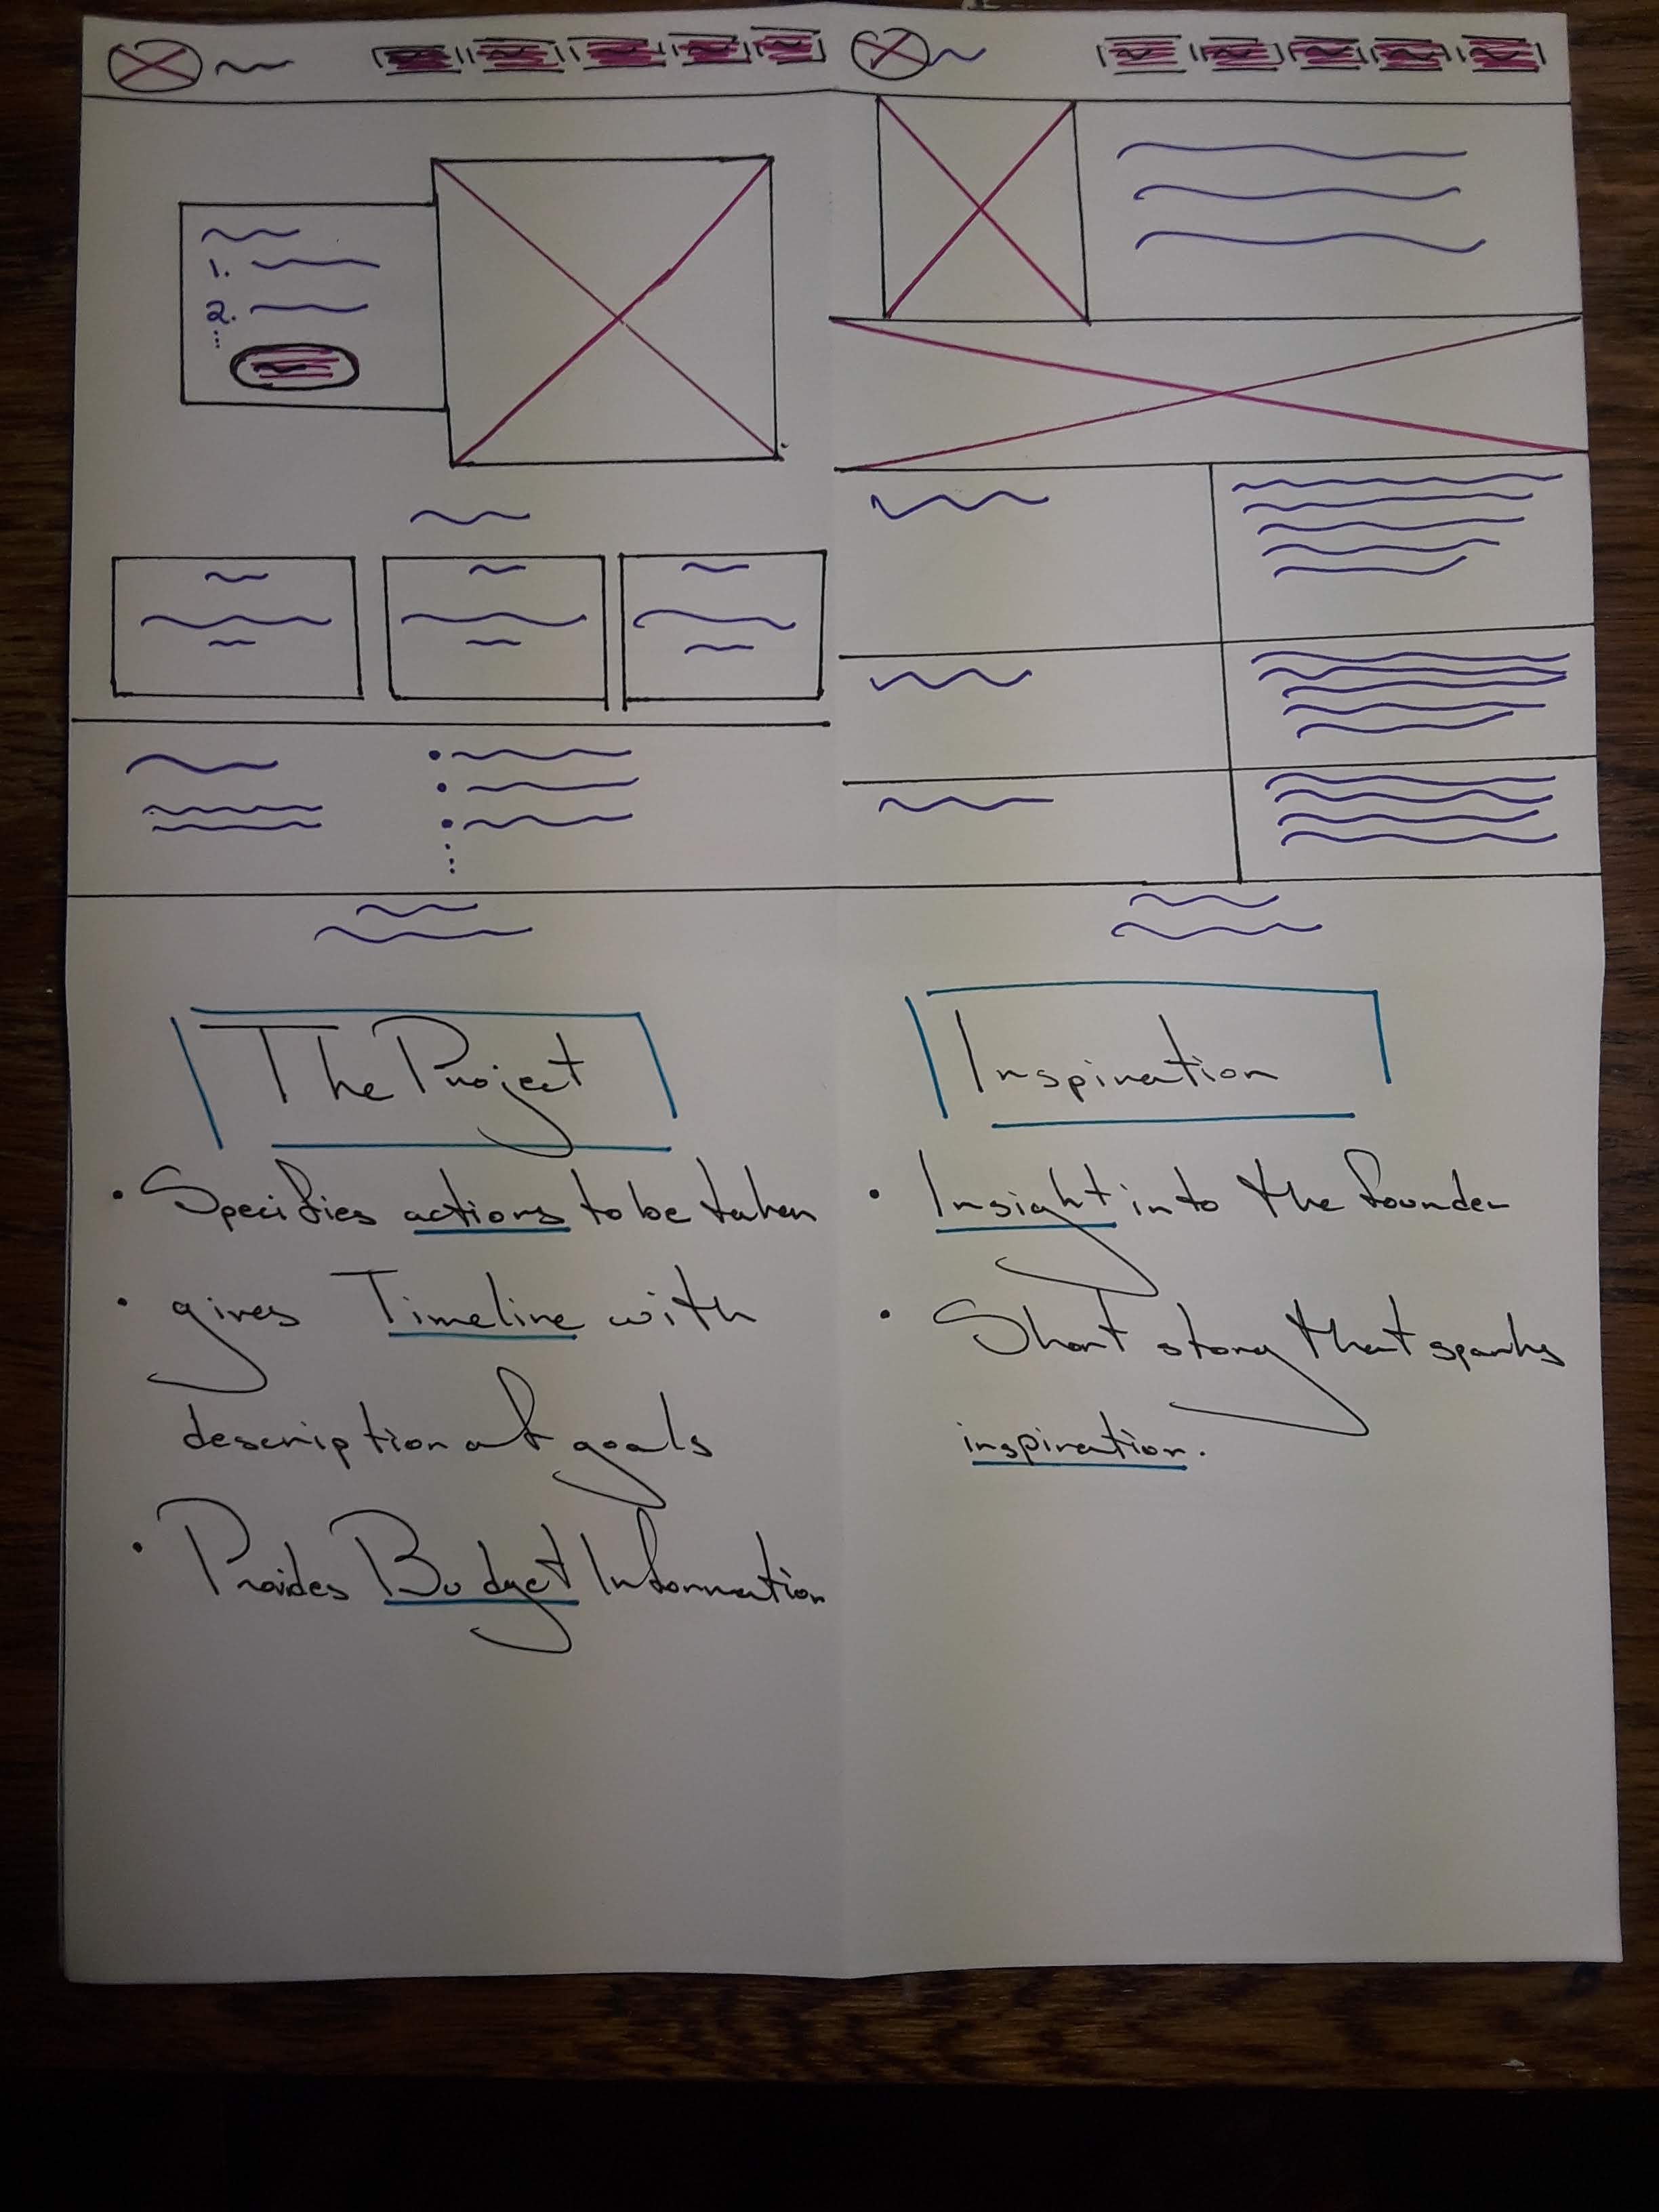 1.
2.
The Project
• Specifies actions to be taken
• gives Timeline with
description of goals
• Provides Budget Information
Inspiration
• Insight into the founder
• Short story that sparks
inspiration.